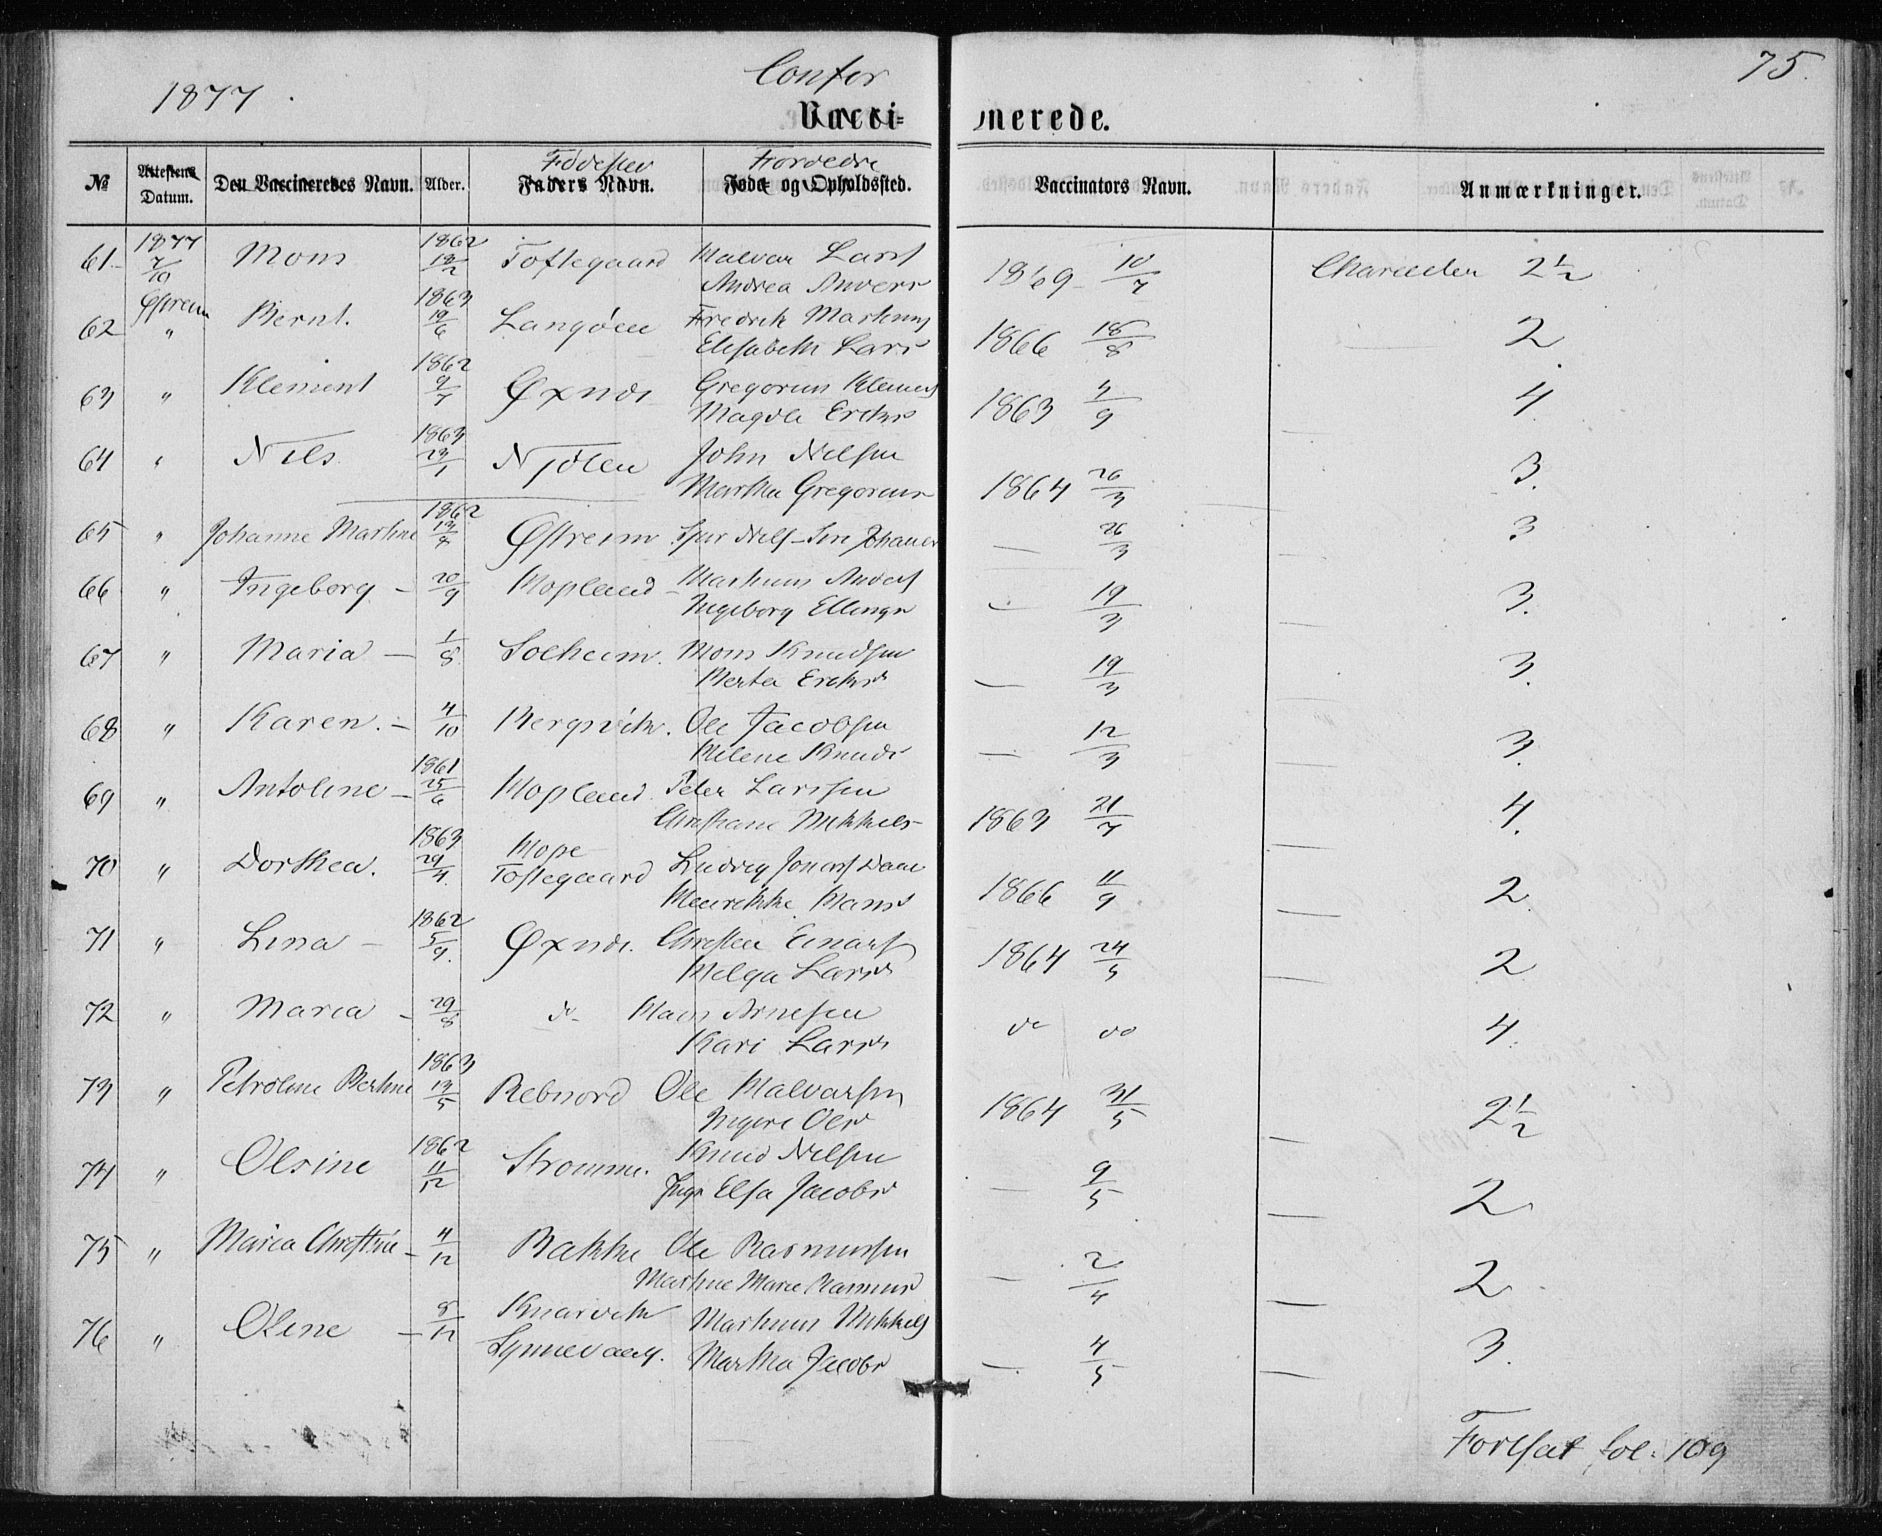 1877.
Confor
75.
Vacci- nerede.
Fødested
Forældre
№ Attestens Datum. Den Vaccineredes Navn. Alder. Faders Navn. Føde og Opholdssted. Vaccinators Navn. Anmærkninger.
61 1877 7/10 Mons 1862 Toftegaard Halvor Larsf 1869 10/7 Charakter 2 1/2
Andrea Anders
62 Østreim " Bernt. 1863 19/6 Langøen Fredrik Markus 1866 18/8 — 2
Elisabeth Lars
63 " Klement 1862 9/7 Øxnes Gregorius Klemets 1863 4/9 — 4
Magdle Eriks
64 " Nils 1863 23/1 Njøten John Nilsen 1864 26/3 — 3.
Martha Gregorius
65 " Johanne Martine 1862 Østreim — 26/3 3
66 " Ingeborg — 20/9 Hopland Markus Andersf — 19/3 — 3.
Ingeborg Ellings
67 " Maria — 1/8 Solheim. Mons Knudsen — 19/3 — 3.
Berta Eriks
68 " Karen. — 4/10 Bergsvik. Ole Jacobsen — 12/3 3.
Helene Knuds
69 " Antoline — 1861 25/6 Hopland Peter Larssen 1863 21/7 — 4.
Christiane Mikkels
70 " Dorthea. 1863 29/4 Hope Toftegaard Ludvig Jonasf Daae 1866 11/9 — 2.
Henrikke Hans
71 " Lina — 1862 5/9. Øxnes. Christen Einarsf 1864 24/5 — 2
Helga Lars
72 " Maria — 29/8 do Hans Arnesen do do 4.
Kari Lars
73 " Petroline Bertine 1863 13/5 Rebnord Ole Halvorsen 1864 31/5 — 2 1/2
Ingeri Ols
74 " Olsine 1862 11/12 Strømme. Knud Nilsen — 9/5 — 2
Elsa Jacobs
75 " Maria Christine — 11/12 Bakke Ole Rasmussen — 2/4 — 2
Martine Marie Rasmus
76 " Oline — 8/12 Knarvik Markus Mikkels — 4/5 — 3.
Lynnevaag. Martha Jacobs
Fortsat fol: 109